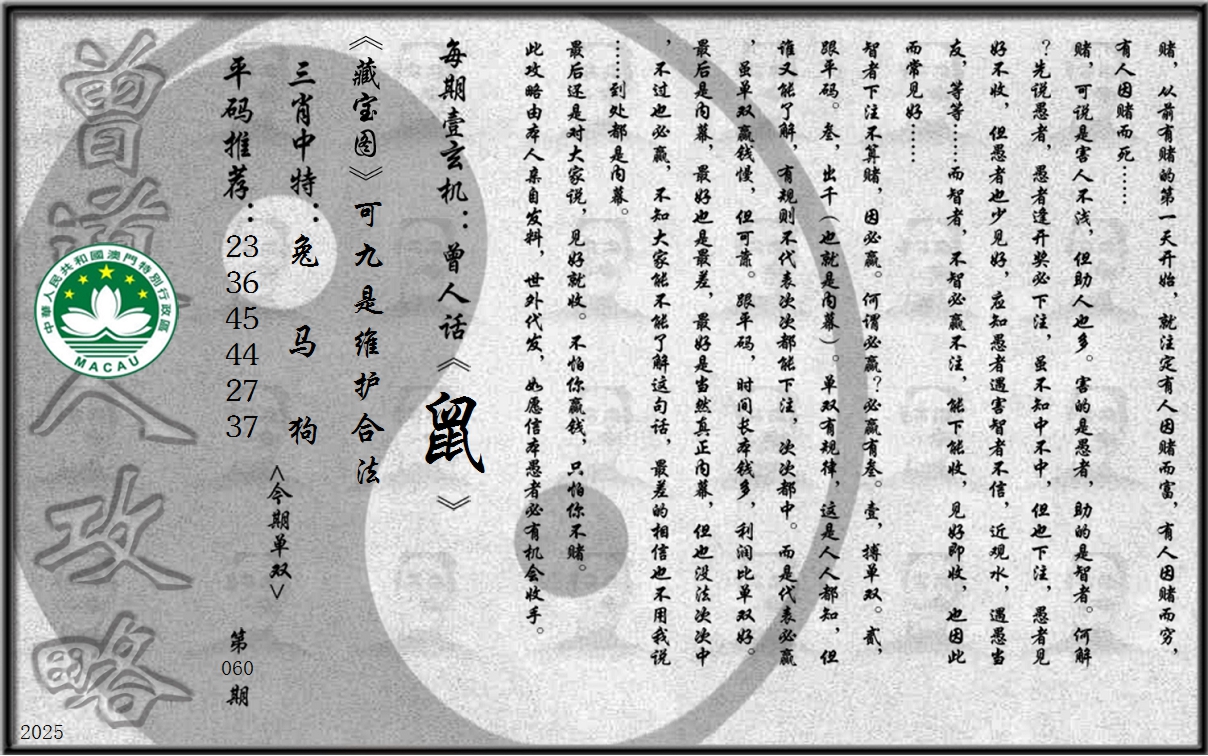 赌，从前有赌的第一天开始，就注定有人因赌而富，有人因赌而穷，
有人因赌而死……
赌，可说是害人不浅，但助人也多。害的是愚者，助的是智者。何解
？先说愚者，愚者逢开奖必下注，虽不知中不中，但也下注，愚者见
好不收，但愚者也少见好，应知愚者遇害智者不信，近观水，遇愚当
友，等等……而智者，不智必赢不注，能下能收，见好即收，也因此
而常见好……
智者下注不算赌，因必赢。何谓必赢？必赢有叁。壹，搏单双。贰，
跟平码。叁，出千（也就是内幕）。单双有规律，这是人人都知，但
谁又能了解，有规则不代表次次都能下注，次次都中。而是代表必赢
，虽单双赢钱慢，但可靠。跟平码，时间长本钱多，利润比单双好。
最后是内幕，最好也是最差，最好是当然真正内幕，但也没法次次中
，不过也必赢，不知大家能不能了解这句话，最差的相信也不用我说
……到处都是内幕。
最后还是对大家说，见好就收。不怕你赢钱，只怕你不赌。
此攻略由本人亲自发料，世外代发，如愿信本愚者必有机会收手。
每期壹玄机：曾人话《鼠》
《藏宝图》可九是维护合法
三肖中特：兔 马 狗
<今期单双>
平码推荐：23 36 45 44 27 37
第060期
曾道人攻略
中華人民共和國澳門特別行政區
MACAU
2025